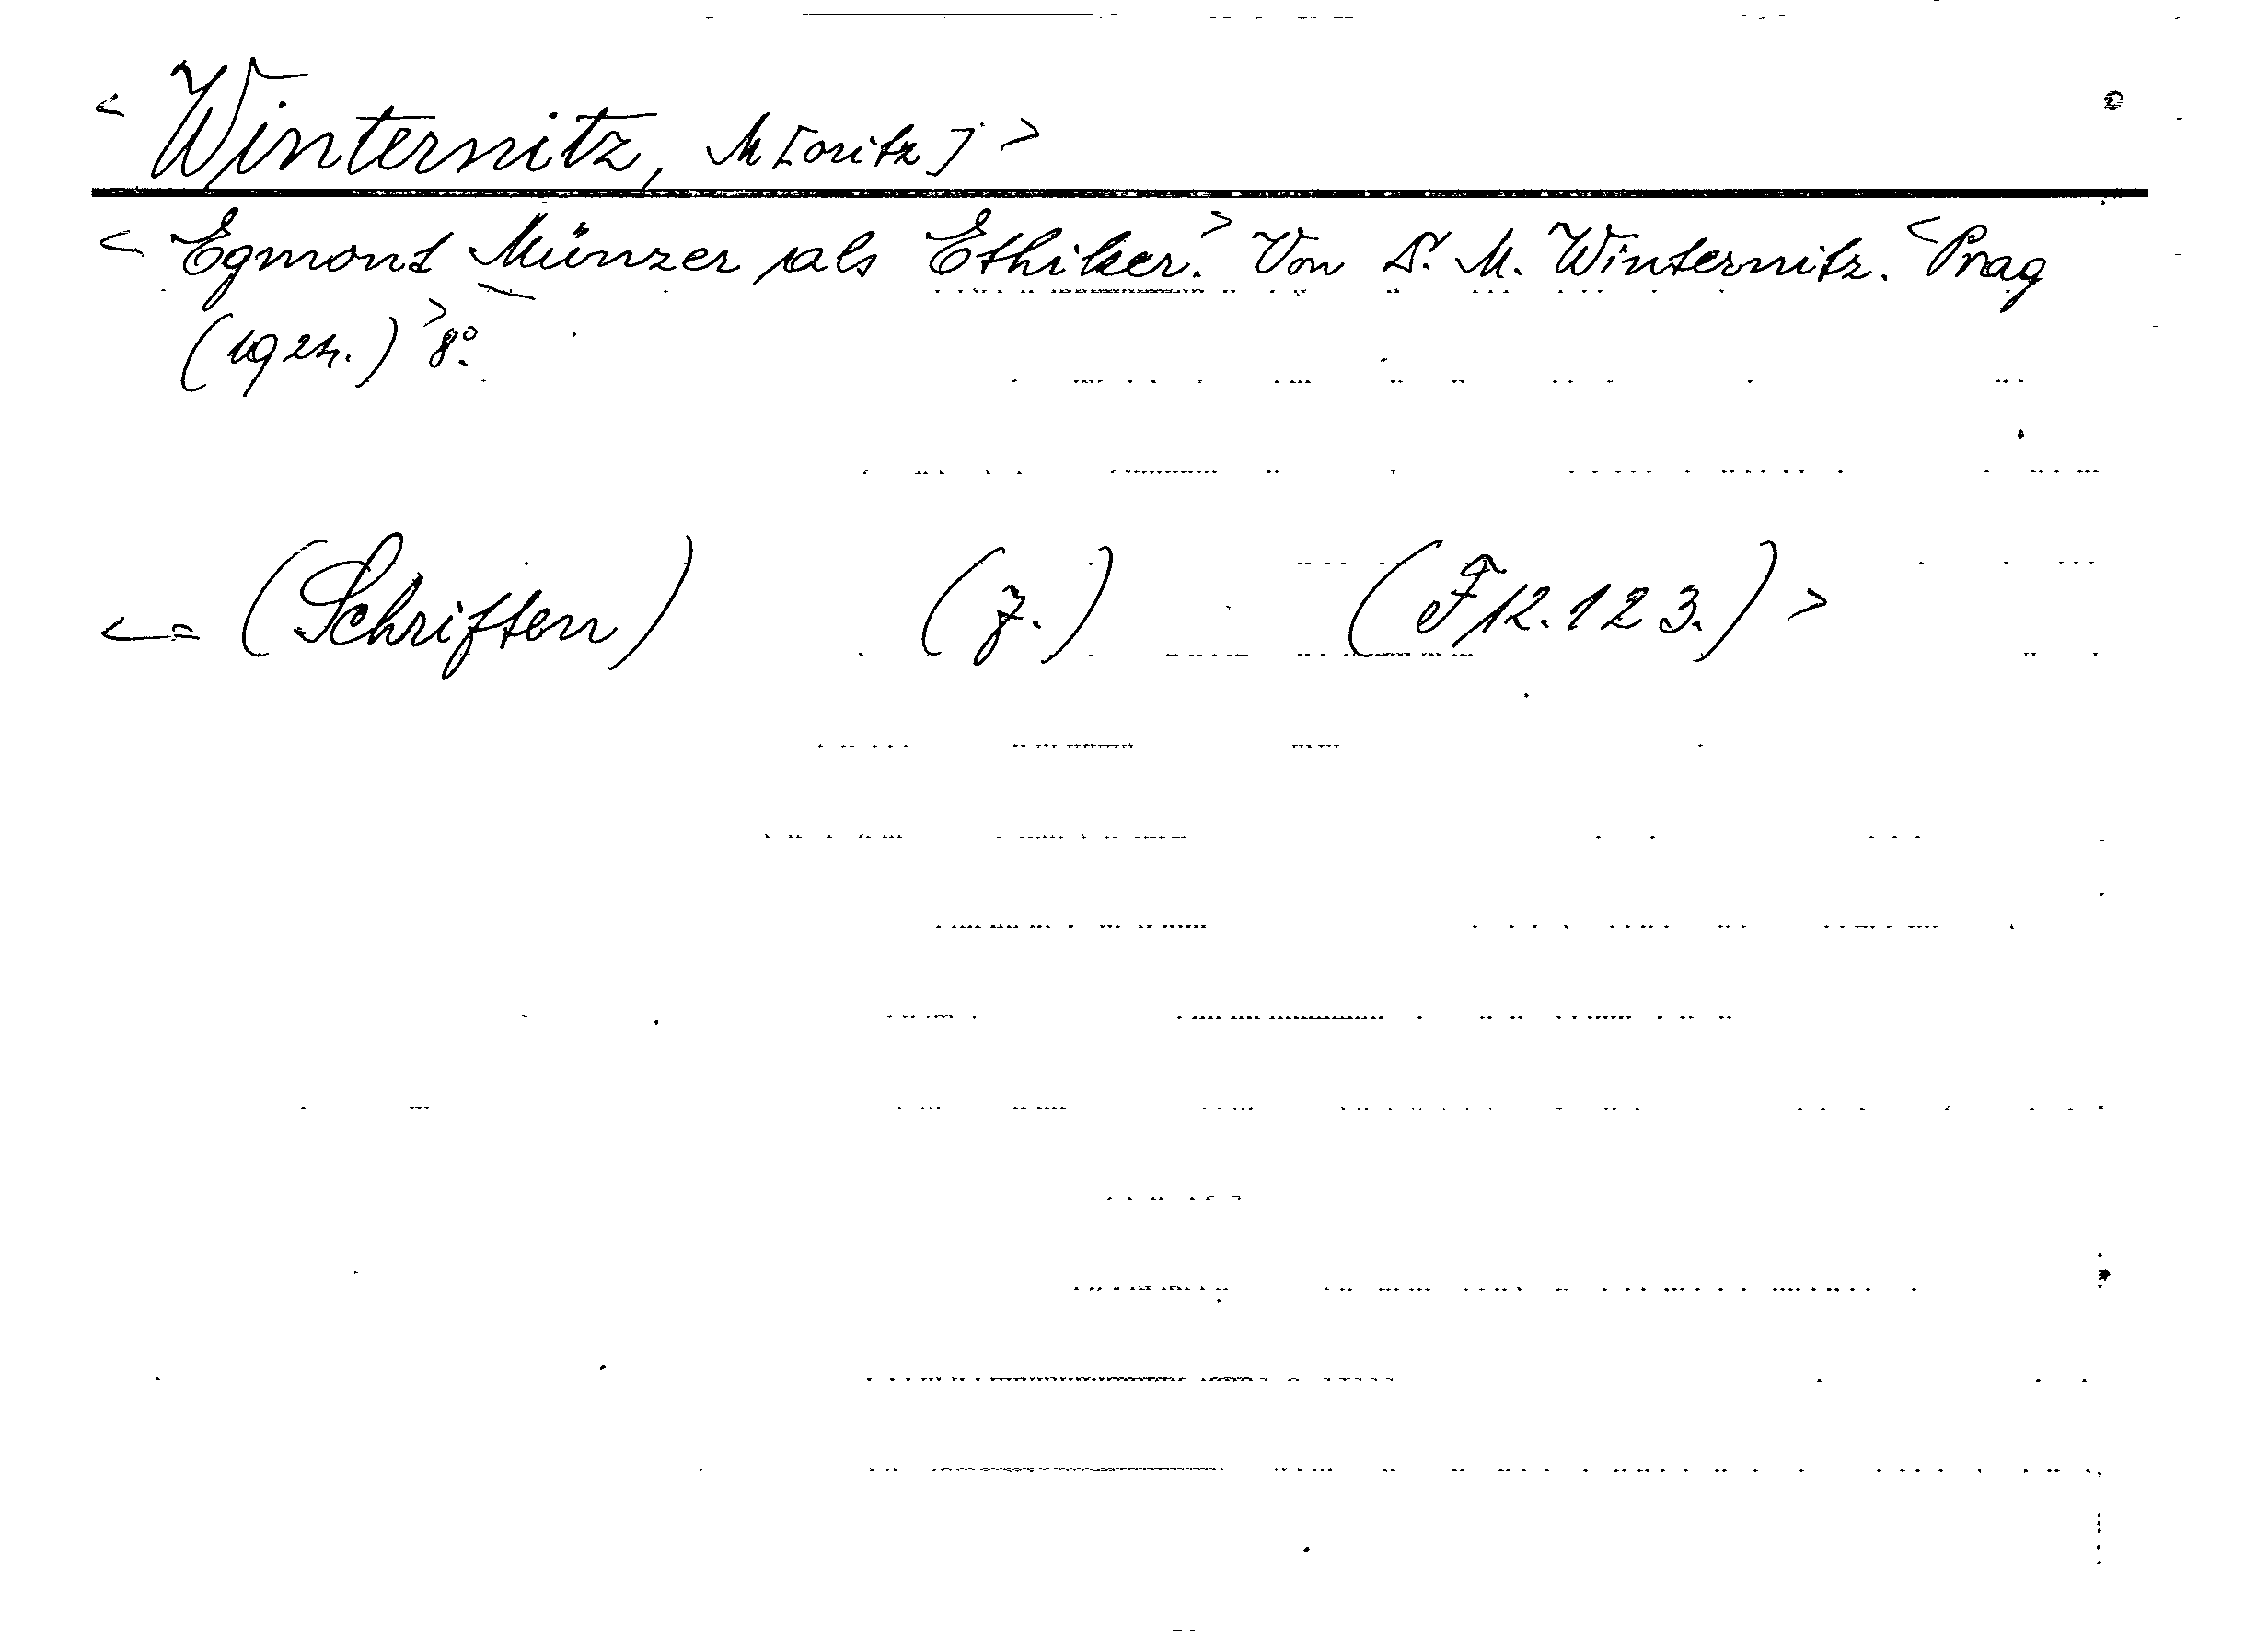 < Winternitz, M[oritz] >
< Egmont Münzer als Ethiker. > Von D. M. Winternitz. < Prag
(1924.) > 8°.
<= (Schriften) (7.) (F 12.123.) >